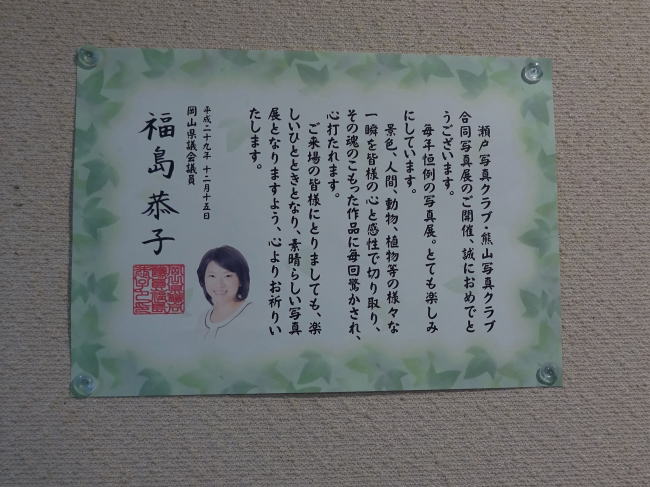 瀬戸写真クラブ・熊山写真クラブ
合同写真展のご開催、誠におめでと
うございます。
毎年恒例の写真展。とても楽しみ
にしています。
景色、人間、動物、植物等の様々な
一瞬を皆様の心と感性で切り取り、
その魂のこもった作品に毎回驚かされ、
心打たれます。
ご来場の皆様にとりましても、楽
しいひとときとなり、素晴らしい写真
展となりますよう、心よりお祈りい
たします。
平成二十九年 十二月十五日
岡山県議会議員
福島 恭子